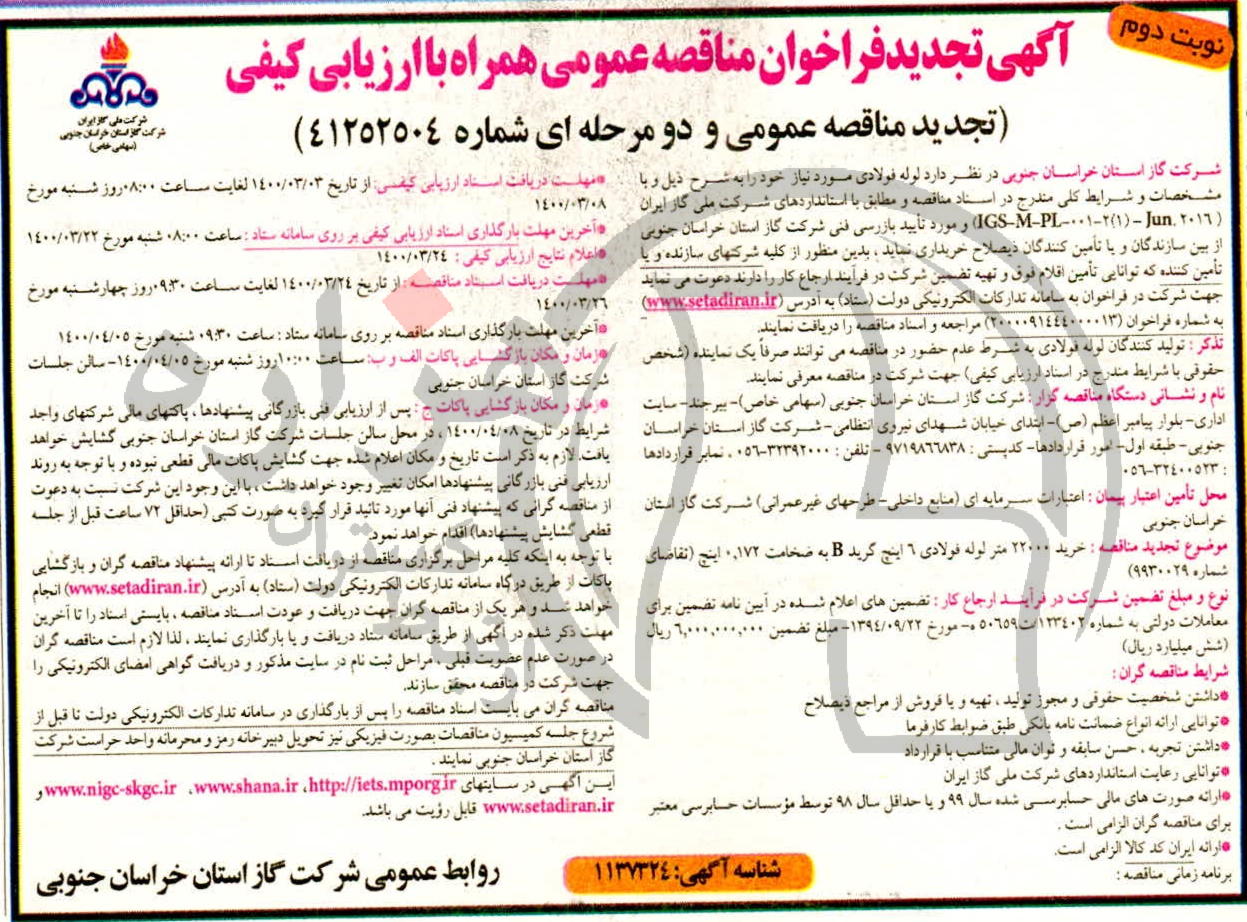 نوبت دوم
آگهی تجدید فراخوان مناقصه عمومی همراه با ارزیابی کیفی
(تجدید مناقصه عمومی و دو مرحله ای شماره ٤١٢٥٢٥٠٤)
شرکت ملی گاز ایران
شرکت گاز استان خراسان جنوبی
(سهامی خاص)
شرکت گاز استان خراسان جنوبی در نظر دارد لوله فولادی مورد نیاز خود را به شرح ذیل و با
مشخصات و شرایط کلی مندرج در اسناد مناقصه و مطابق با استانداردهای شرکت ملی گاز ایران
(IGS-M-PL-٠٠١-٢(١) – Jun. ٢٠١٦ ) و مورد تأیید بازرسی فنی شرکت گاز استان خراسان جنوبی
از بین سازندگان و یا تأمین کنندگان ذیصلاح خریداری نماید ، بدین منظور از کلیه شرکتهای سازنده و یا
تأمین کننده که توانایی تأمین اقلام فوق و تهیه تضمین شرکت در فرآیند ارجاع کار را دارند دعوت می نماید
جهت شرکت در فراخوان به سامانه تدارکات الکترونیکی دولت (ستاد) به آدرس (www.setadiran.ir)
به شماره فراخوان (٢٠٠٠٠٩١٤٤٤٠٠٠٠١٣) مراجعه و اسناد مناقصه را دریافت نمایند.
تذکر : تولید کنندگان لوله فولادی به شرط عدم حضور در مناقصه می توانند صرفاً یک نماینده (شخص
حقوقی با شرایط مندرج در اسناد ارزیابی کیفی) جهت شرکت در مناقصه معرفی نمایند.
نام و نشانی دستگاه مناقصه گزار : شرکت گاز استان خراسان جنوبی (سهامی خاص)- بیرجند- سایت
اداری- بلوار پیامبر اعظم (ص)- ابتدای خیابان شهدای نیروی انتظامی- شرکت گاز استان خراسان
جنوبی- طبقه اول- امور قراردادها- کدپستی : ٩٧١٩٨٦٦٨٣٨ - تلفن : ٣٢٣٩٢٠٠٠-٠٥٦ ، نمابر قراردادها
: ٣٢٤٠٠٥٢٣-٠٥٦
محل تأمین اعتبار پیمان : اعتبارات سرمایه ای (منابع داخلی- طرحهای غیرعمرانی) شرکت گاز استان
خراسان جنوبی
موضوع تجدید مناقصه : خرید ٢٢٠٠٠ متر لوله فولادی ٦ اینچ گرید B به ضخامت ٠,١٧٢ اینچ (تقاضای
شماره ٩٩٣٠٠٢٩)
نوع و مبلغ تضمین شرکت در فرآیند ارجاع کار : تضمین های اعلام شده در آیین نامه تضمین برای
معاملات دولتی به شماره ١٢٣٤٠٢/ت٥٠٦٥٩ ه- مورخ ١٣٩٤/٠٩/٢٢- مبلغ تضمین ٦,٠٠٠,٠٠٠,٠٠٠ ریال
(شش میلیارد ریال)
شرایط مناقصه گران :
*داشتن شخصیت حقوقی و مجوز تولید ، تهیه و یا فروش از مراجع ذیصلاح
*توانایی ارائه انواع ضمانت نامه بانکی طبق ضوابط کارفرما
*داشتن تجربه ، حسن سابقه و توان مالی متناسب با قرارداد
*توانایی رعایت استانداردهای شرکت ملی گاز ایران
*ارائه صورت های مالی حسابرسی شده سال ٩٩ و یا حداقل سال ٩٨ توسط مؤسسات حسابرسی معتبر
برای مناقصه گران الزامی است .
*ارائه ایران کد کالا الزامی است.
برنامه زمانی مناقصه :
*مهلت دریافت اسناد ارزیابی کیفی: از تاریخ ١٤٠٠/٠٣/٠٣ لغایت ساعت ٠٨:٠٠ روز شنبه مورخ
١٤٠٠/٠٣/٠٨
*آخرین مهلت بارگذاری اسناد ارزیابی کیفی بر روی سامانه ستاد : ساعت ٠٨:٠٠ شنبه مورخ ١٤٠٠/٠٣/٢٢
*اعلام نتایج ارزیابی کیفی : ١٤٠٠/٠٣/٢٤
*مهلت دریافت اسناد مناقصه : از تاریخ ١٤٠٠/٠٣/٢٤ لغایت ساعت ٠٩:٣٠ روز چهارشنبه مورخ
١٤٠٠/٠٣/٢٦
*آخرین مهلت بارگذاری اسناد مناقصه بر روی سامانه ستاد : ساعت ٠٩:٣٠ شنبه مورخ ١٤٠٠/٠٤/٠٥
*زمان و مکان بازگشایی پاکات الف و ب: ساعت ١٠:٠٠ روز شنبه مورخ ١٤٠٠/٠٤/٠٥- سالن جلسات
شرکت گاز استان خراسان جنوبی
*زمان و مکان بازگشایی پاکات ج : پس از ارزیابی فنی بازرگانی پیشنهادها ، پاکتهای مالی شرکتهای واجد
شرایط در تاریخ ١٤٠٠/٠٤/٠٨ ، در محل سالن جلسات شرکت گاز استان خراسان جنوبی گشایش خواهد
یافت. لازم به ذکر است تاریخ و مکان اعلام شده جهت گشایش پاکات مالی قطعی نبوده و با توجه به روند
ارزیابی فنی بازرگانی پیشنهادها امکان تغییر وجود خواهد داشت ، با این وجود این شرکت نسبت به دعوت
از مناقصه گرانی که پیشنهاد فنی آنها مورد تائید قرار گیرد به صورت کتبی (حداقل ٧٢ ساعت قبل از جلسه
قطعی گشایش پیشنهادها) اقدام خواهد نمود.
با توجه به اینکه کلیه مراحل برگزاری مناقصه از دریافت اسناد تا ارائه پیشنهاد مناقصه گران و بازگشایی
پاکات از طریق درگاه سامانه تدارکات الکترونیکی دولت (ستاد) به آدرس (www.setadiran.ir) انجام
خواهد شد و هر یک از مناقصه گران جهت دریافت و عودت اسناد مناقصه ، بایستی اسناد را تا آخرین
مهلت ذکر شده در آگهی از طریق سامانه ستاد دریافت و یا بارگذاری نمایند ، لذا لازم است مناقصه گران
در صورت عدم عضویت قبلی ، مراحل ثبت نام در سایت مذکور و دریافت گواهی امضای الکترونیکی را
جهت شرکت در مناقصه محقق سازند.
مناقصه گران می بایست اسناد مناقصه را پس از بارگذاری در سامانه تدارکات الکترونیکی دولت تا قبل از
شروع جلسه کمیسیون مناقصات بصورت فیزیکی نیز تحویل دبیرخانه رمز و محرمانه واحد حراست شرکت
گاز استان خراسان جنوبی نمایند .
این آگهی در سایتهای www.nigc-skgc.ir ،www.shana.ir ،http://iets.mporg.ir و
www.setadiran.ir قابل رؤیت می باشد.
شناسه آگهی: ١١٣٧٣٢٤
روابط عمومی شرکت گاز استان خراسان جنوبی
هزاره